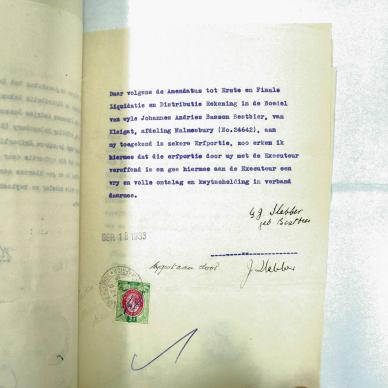 Daar volgens de Amendatus tot Erste en Finale
Liquidatie en Distributie Rekening in de Boedel
van wyle Johannes Andries Basson Bestbier, van
Kleigat, afdeling Malmesbury (No.24642), aan
my toegekend is sekere Erfportie, zoo erken ik
hiermee dat die erfportie door my met de Executeur
vereffend is en gee hiermee aan de Executeur een
vry en volle ontslag en kwytschelding in verband
daarmee.
Slabber
geb Bestbier
SEP 15 1933
door J Slabber